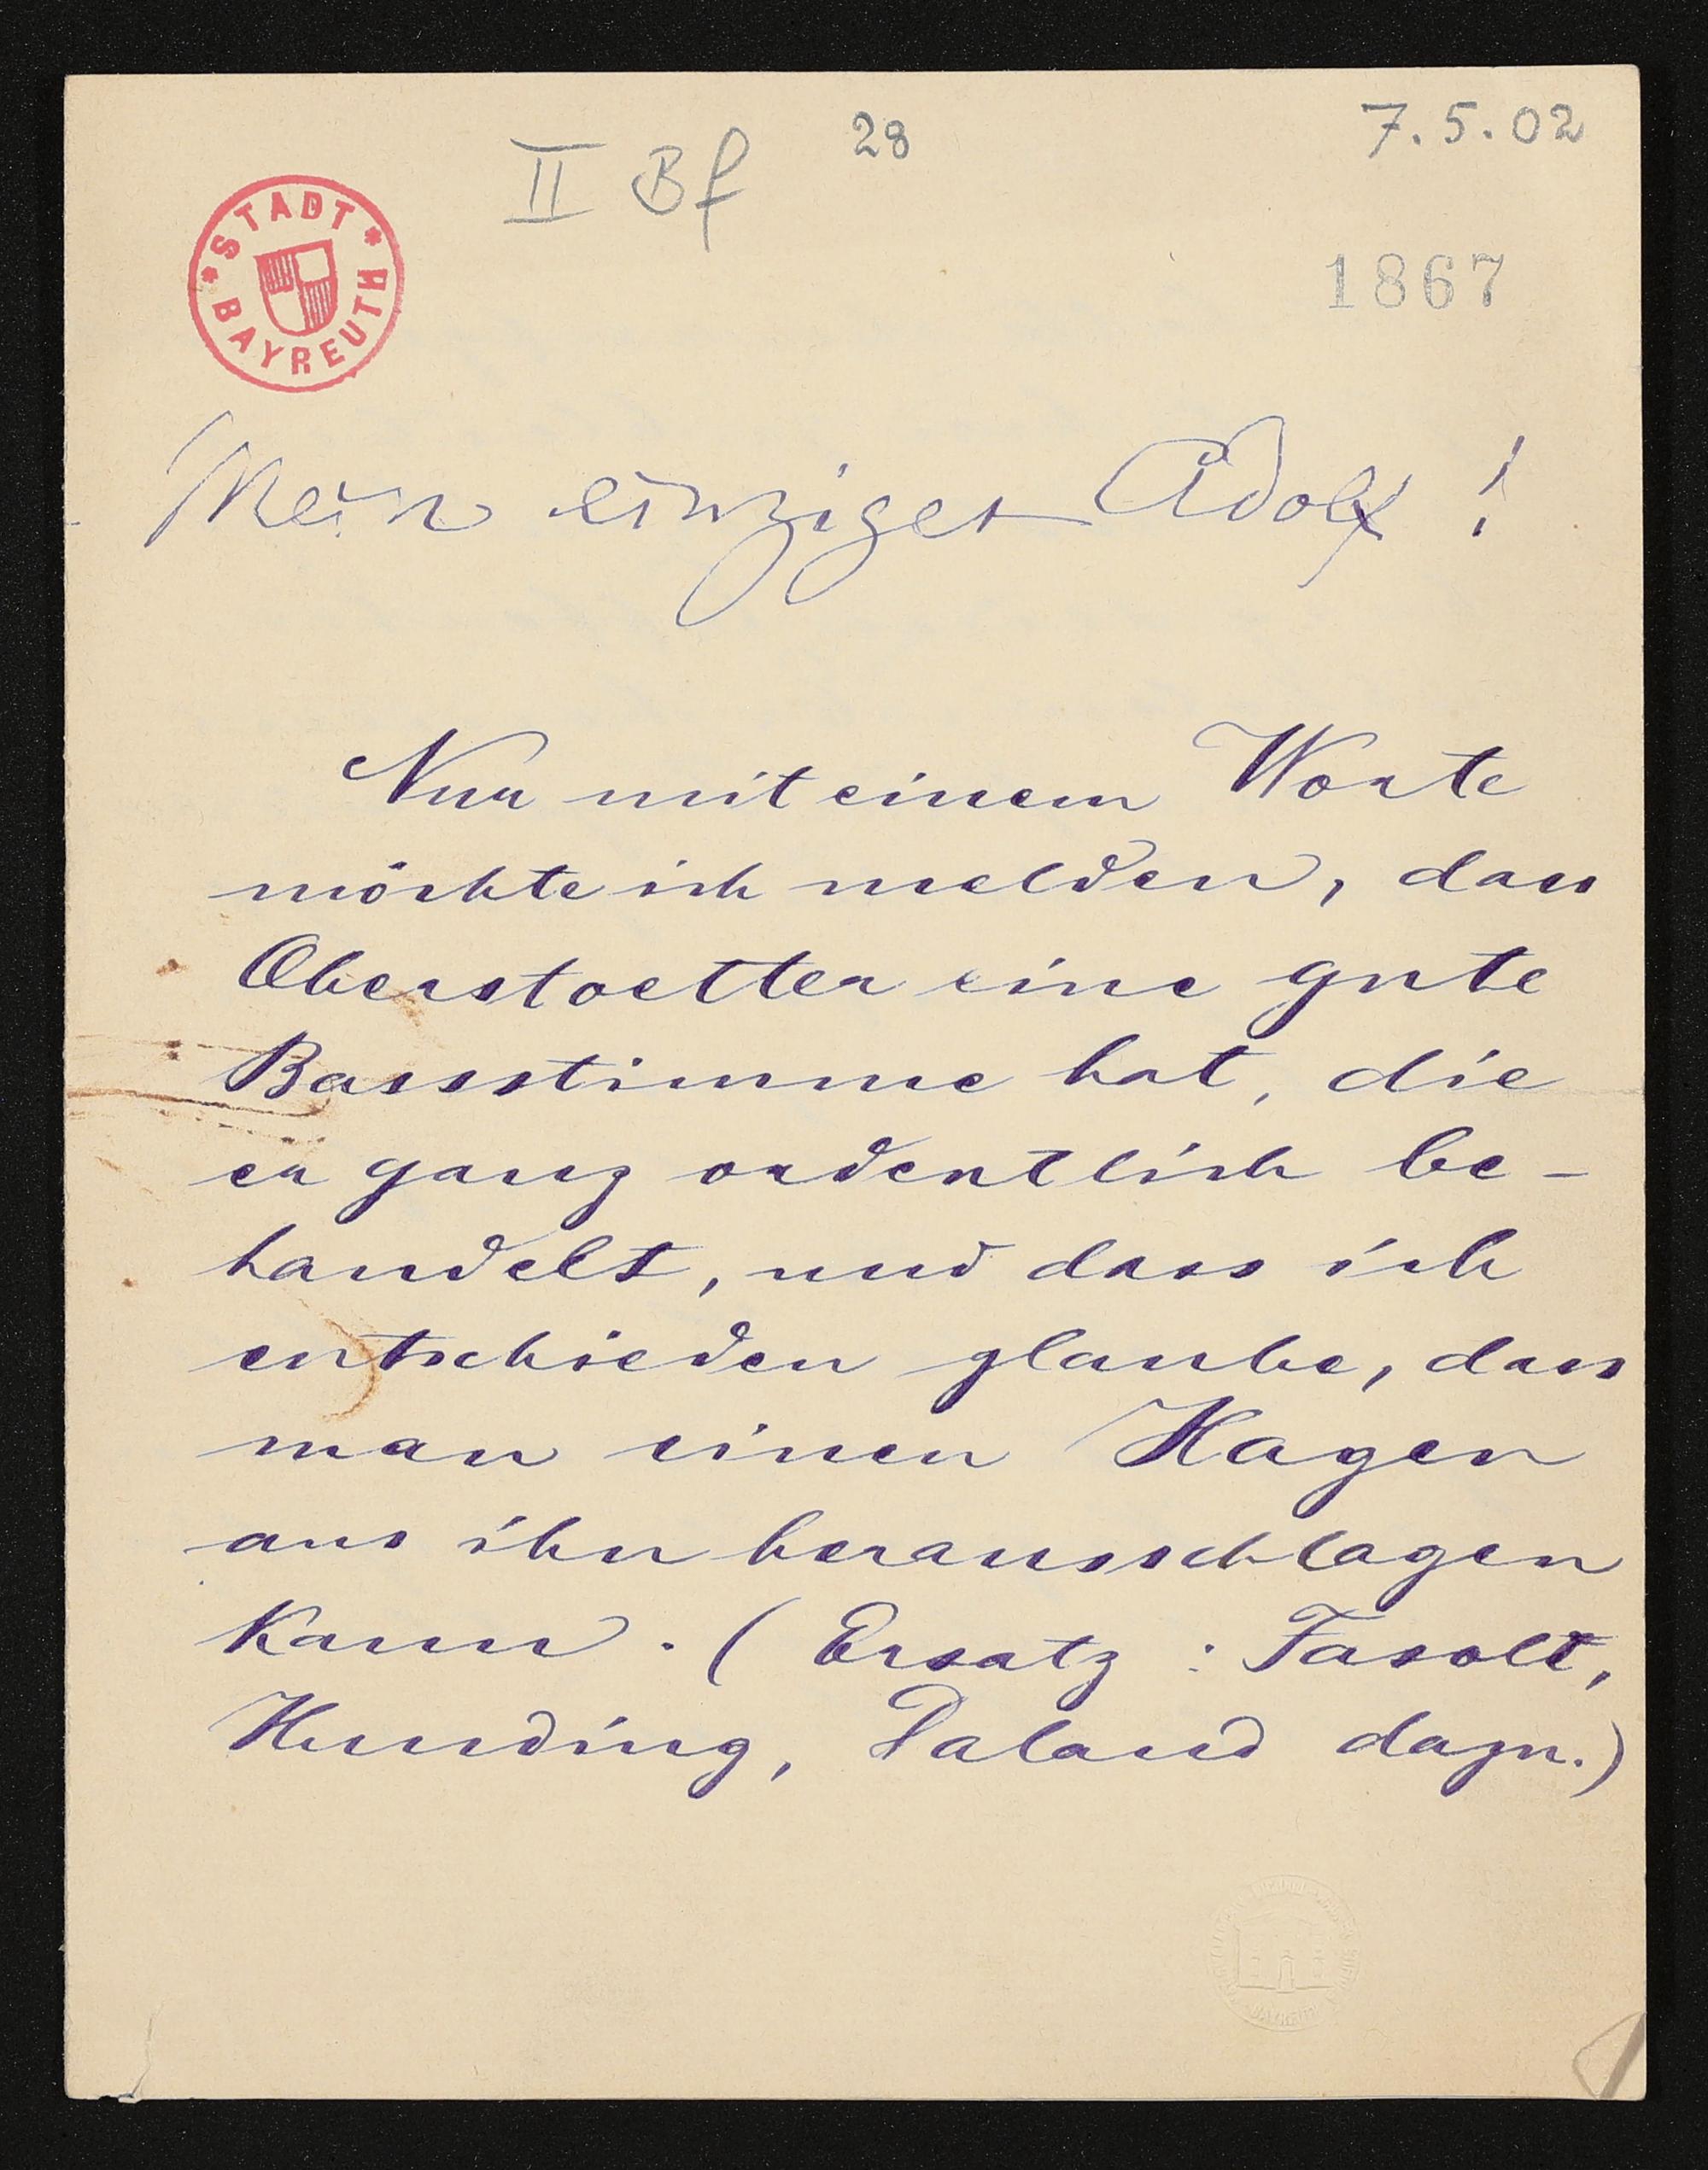 28
7.5.02
II Bf
STADT BAYREUTH
1867
Mein einziger Adolf !
Nur mit einem Worte
möchte ich melden, dass
Oberstoetter eine gute
Bassstimme hat, die
er ganz ordentlich be-
handelt, und dass ich
entschieden glaube, dass
man einen Hagen
aus ihm herausschlagen
kann. (Ersatz : Fasolt,
Hunding, Daland dazu.)